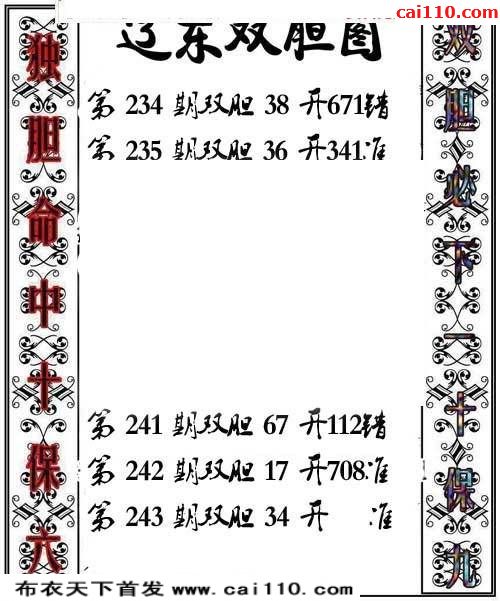 cai110.com
辽东双胆图
独胆命中十保六
第 234 期双胆 38 开671错
第 235 期双胆 36 开341准
第 241 期双胆 67 开112错
第 242 期双胆 17 开708准
第 243 期双胆 34 开 准
双胆必下一十保九
布衣天下首发 www.cai110.com